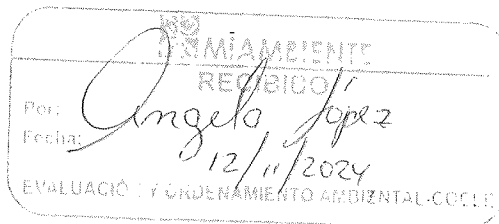 MiAMBIENTE
RECIBIDO
Por: Angela López
Fecha: 12/11/2024
EVALUACIÓN Y ORDENAMIENTO AMBIENTAL-COCLÉ